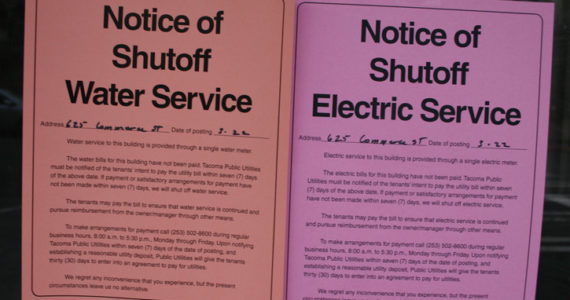 Notice of
Shutoff
Water Service
Address 625 Commerce ST Date of posting 3-22
Water service to this building is provided through a single water meter.
The water bills for this building have not been paid. Tacoma Public Utilities
must be notified of the tenants' intent to pay the utility bill within seven (7) days
of the above date. If payment or satisfactory arrangements for payment have
not been made within seven (7) days, we will shut off water service.
The tenants may pay the bill to ensure that water service is continued and
pursue reimbursement from the owner/manager through other means.
To make arrangements for payment call (253) 502-8600 during regular
business hours, 8:00 a.m. to 5:30 p.m., Monday through Friday. Upon notifying
Tacoma Public Utilities within seven (7) days of the date of posting, and
establishing a reasonable utility deposit, Public Utilities will give the tenants
thirty (30) days to enter into an agreement to pay for utilities.
We regret any inconvenience that you may experience, but the present
circumstances leave us no alternative.
Notice of
Shutoff
Electric Service
Address 625 Commerce ST Date of posting 3-22
Electric service to this building is provided through a single electric meter.
The electric bills for this building have not been paid. Tacoma Public
Utilities must be notified of the tenants' intent to pay the utility bill within seven (7)
days of the above date. If payment or satisfactory arrangements for payment
have not been made within seven (7) days, we will shut off electric service.
The tenants may pay the bill to ensure that electric service is continued
and pursue reimbursement from the owner/manager through other means.
To make arrangements for payment call (253) 502-8600 during regular
business hours, 8:00 a.m. to 5:30 p.m., Monday through Friday. Upon notifying
Tacoma Public Utilities within seven (7) days of the date of posting, and
establishing a reasonable utility deposit, Public Utilities will give the tenants
thirty (30) days to enter into an agreement to pay for utilities.
We regret any inconvenience that you may experience, but the present
circumstances leave us no alternative.